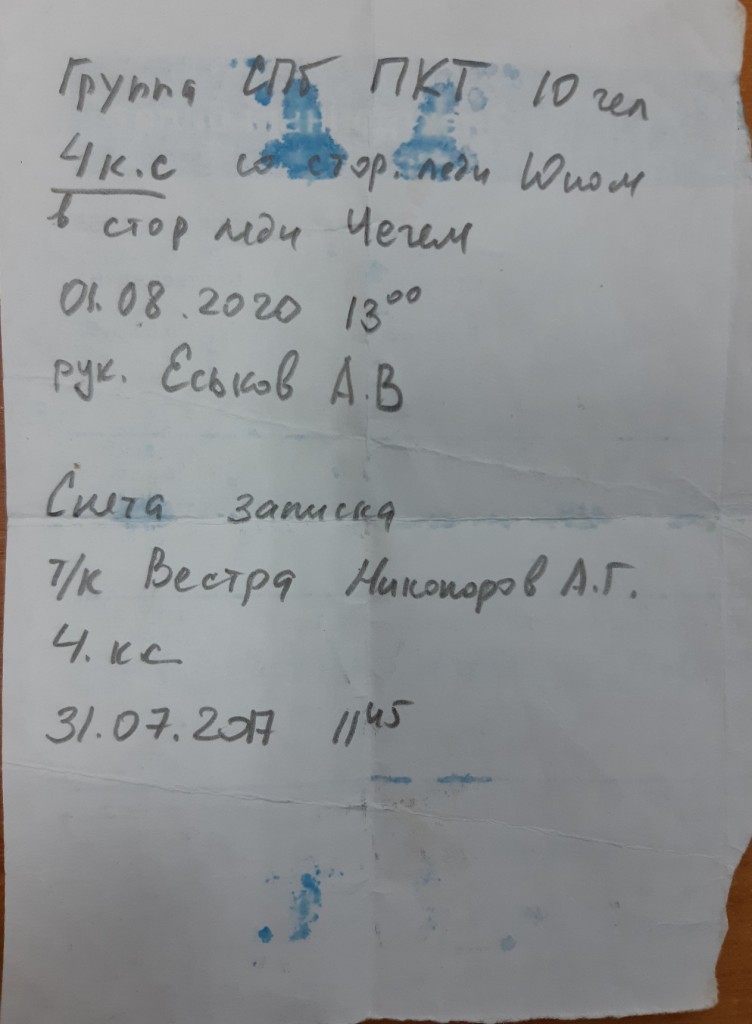 Группа СПб ПКТ 10 чел
4 к.с со стор. ледн Юном
в стор ледн Чегем
01.08.2020 13⁰⁰
рук. Еськов А.В
Снята записка
т/к Вестра Никоноров А.Г.
4. кс
31.07.2017 11⁴⁵